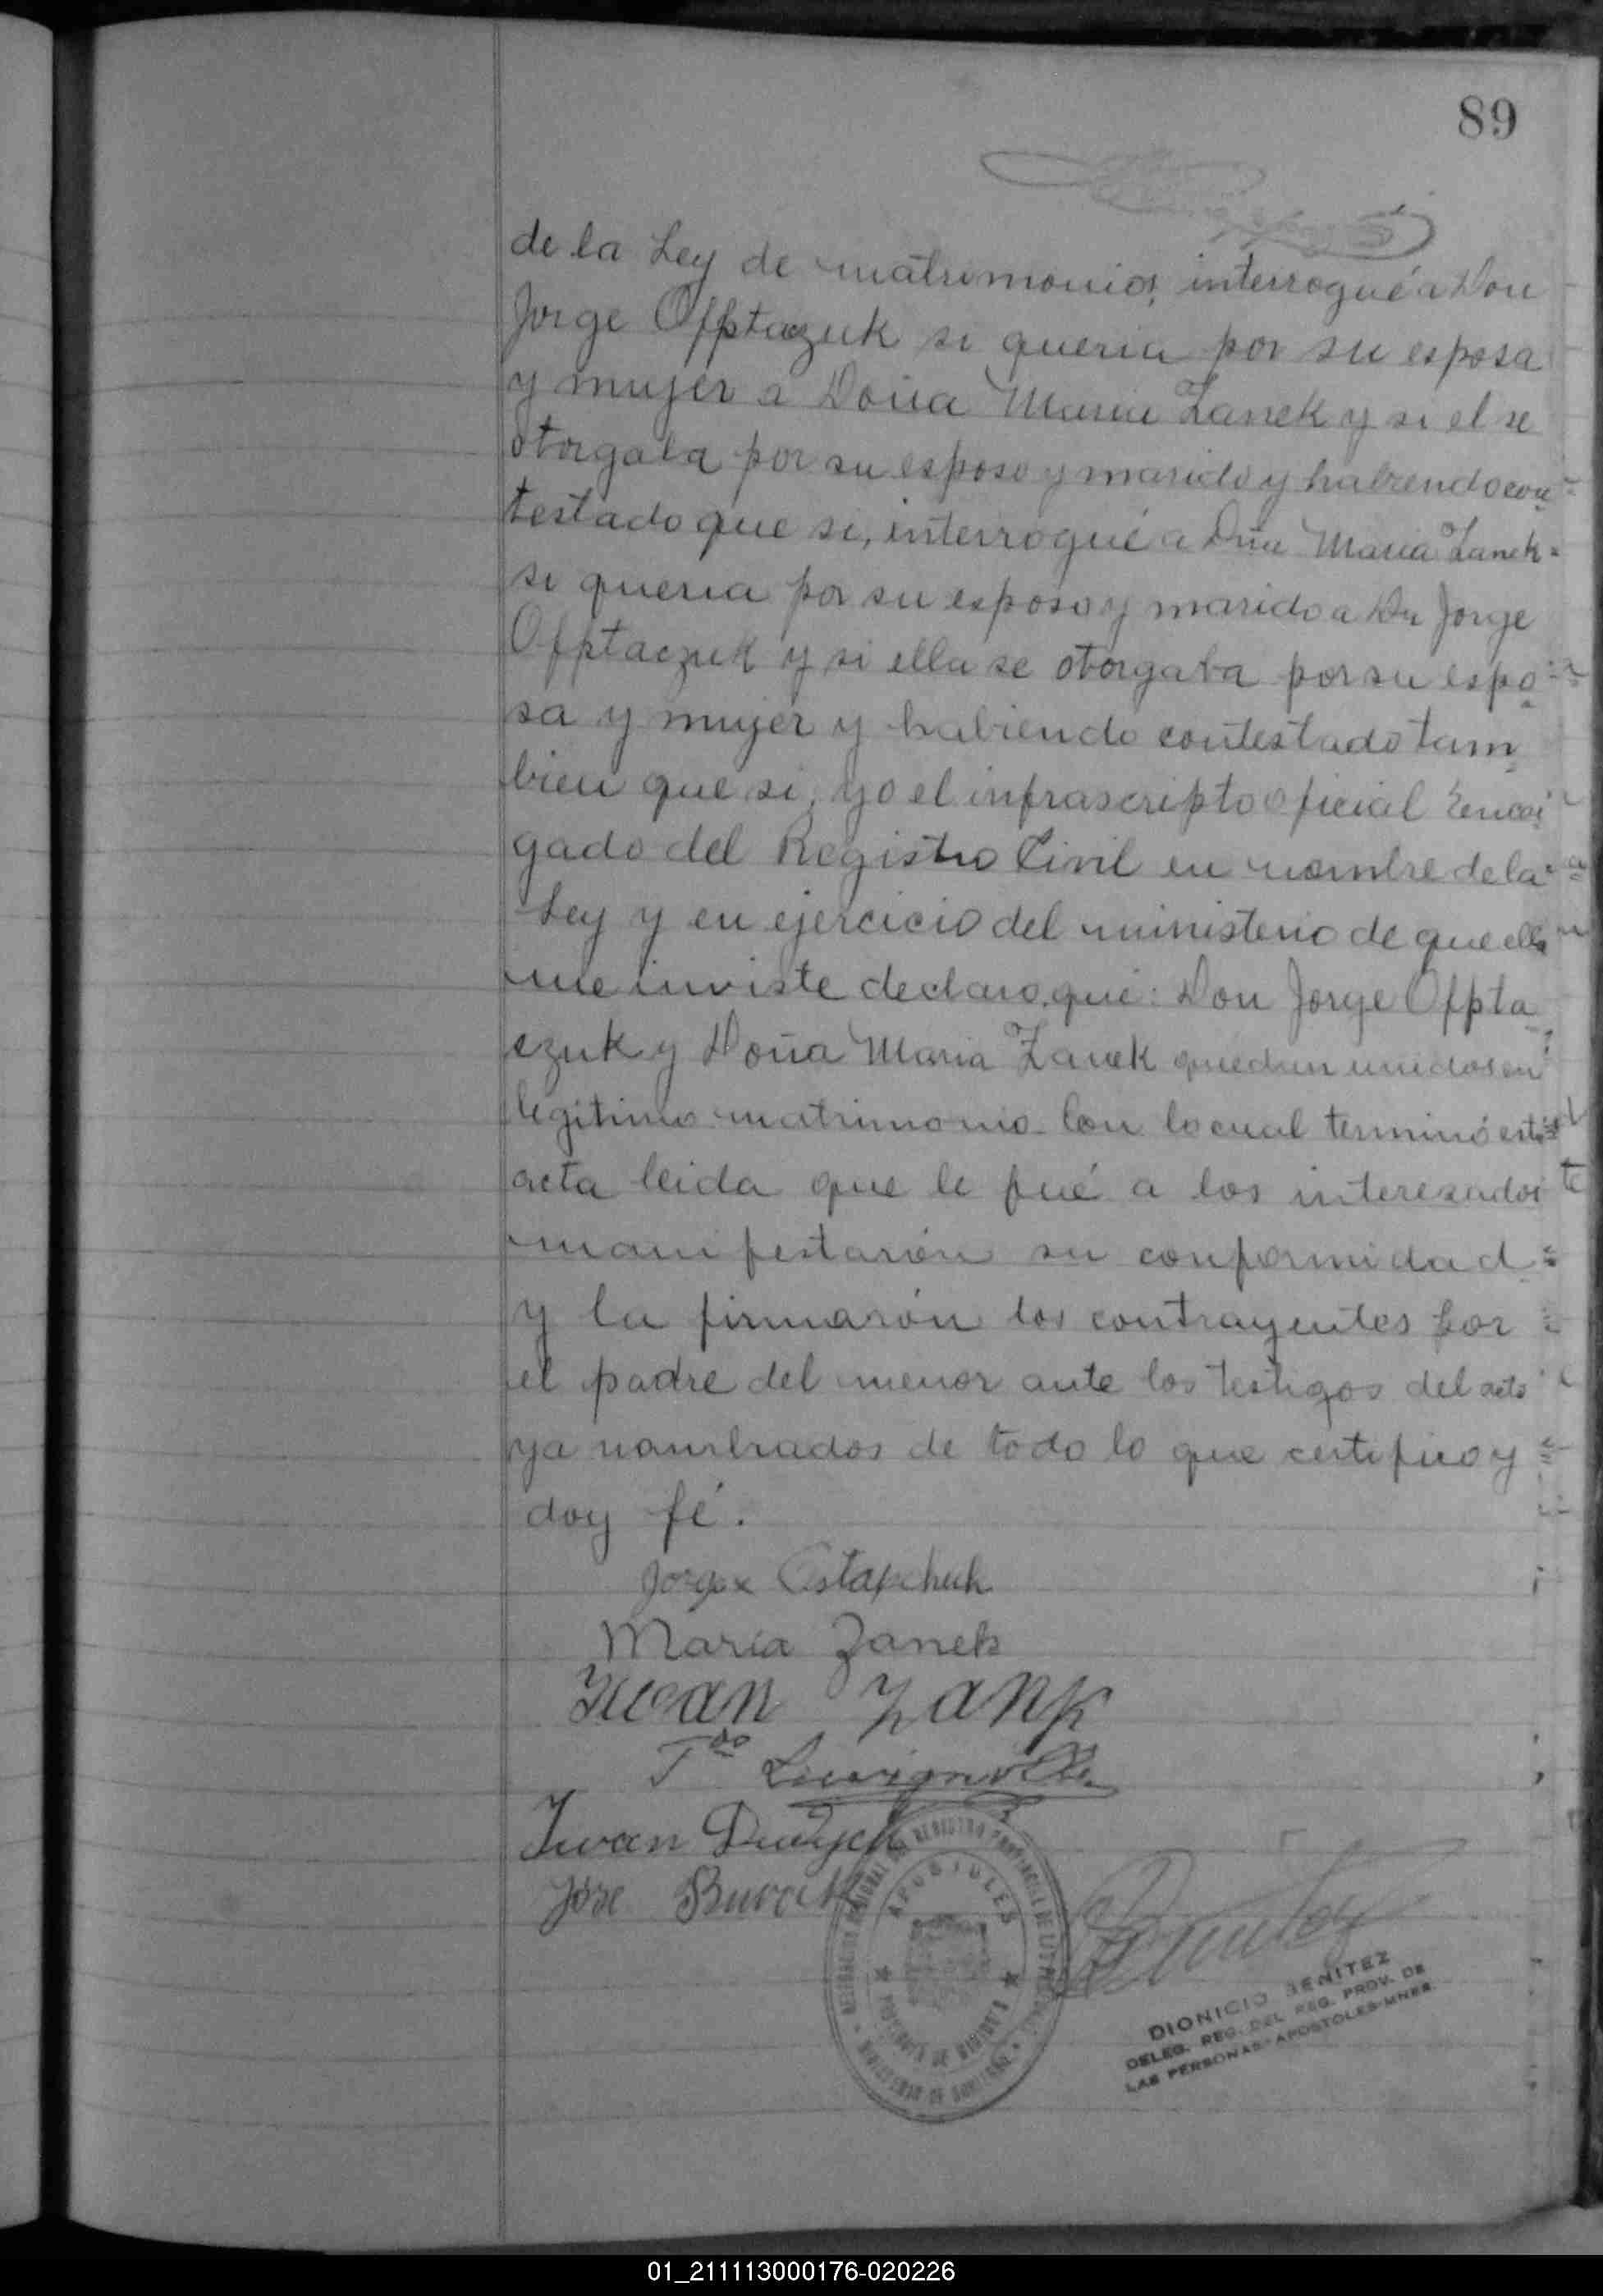 89
de la Ley de matrimonios, interrogué a Don
Jorge Offptaczuk si queria por su esposa
y mujer a Doña Maria Zanek y si el se
otorgaba por su esposo y marido y habiendo con-
testado que si, interrogué a Dña Maria Zanek-
si queria por su esposo y marido a Dn Jorge
Offptaczuk y si ella se otorgaba por su espo-
sa y mujer y habiendo contestado tam-
bien que si, yo el infrascripto oficial Encar-
gado del Registro Civil en nombre de la
Ley y en ejercicio del ministerio de que ella
me inviste declaro, que: Don Jorge Offpta-
czuk y Doña Maria Zanek quedan unidos en
legitimo matrimonio. Con lo cual terminó esta
acta leida que le fué a los interesados
manifestarón su conformidad
y la firmarón los contrayentes por
el padre del menor ante los testigos del acto
ya nombrados de todo lo que certifico y
doy fé.
Jorge Ostapchuk
Maria Zanek
Iwan Zank
Tdo
Iwan
José Burak
REGISTRO PROVINCIAL DE LAS PERSONAS
APOSTOLES
PROVINCIA DE MISIONES
MINISTERIO DE GOBIERNO
DIONICIO BENITEZ
DELEG. REG. DEL REG. PROV. DE
LAS PERSONAS-APOSTOLES-MNES.
01_211113000176-020226